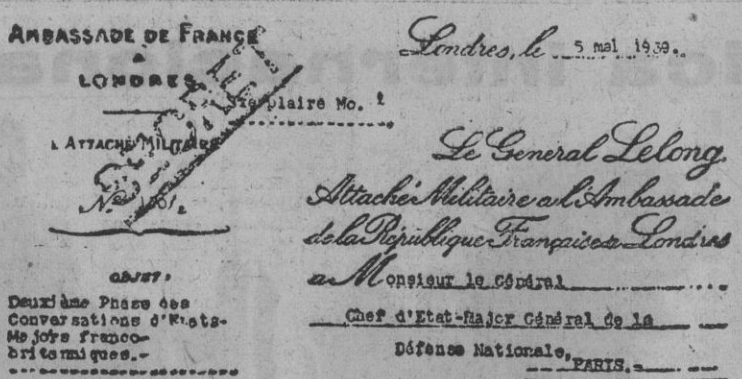 AMBASSADE DE FRANCE
à
LONDRES
Exemplaire No. 1
L'ATTACHÉ MILITAIRE
No
OBJET:
Deuxième Phase des
Conversations d'Etats-
Majors franco-
britanniques.-
Londres, le 5 mai 1939.
Le General Lelong
Attaché Militaire a l'Ambassade
de la République Française a Londres
a Monsieur le Général
Chef d'Etat-Major Général de la
Défense Nationale,
PARIS.-